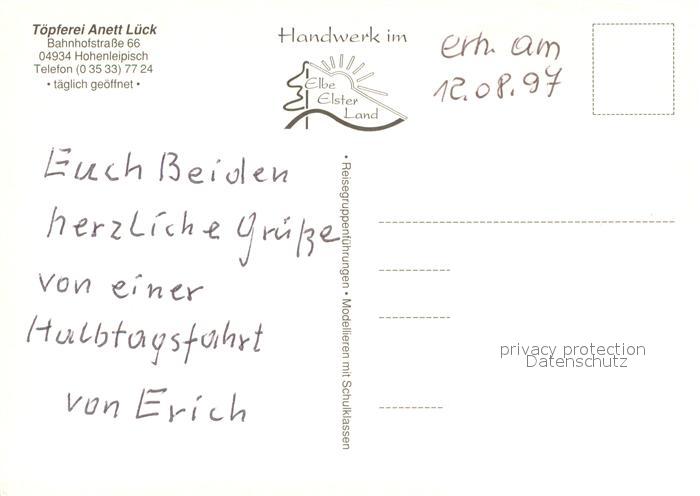 Töpferei Anett Lück
Bahnhofstraße 66
04934 Hohenleipisch
Telefon (0 35 33) 77 24
• täglich geöffnet •
Handwerk im
Elbe
Elster
Land
erh. am
12.08.97
Euch Beiden
herzliche Grüße
von einer
Halbtagsfahrt
von Erich
• Reisegruppenführungen • Modellieren mit Schulklassen
privacy protection
Datenschutz